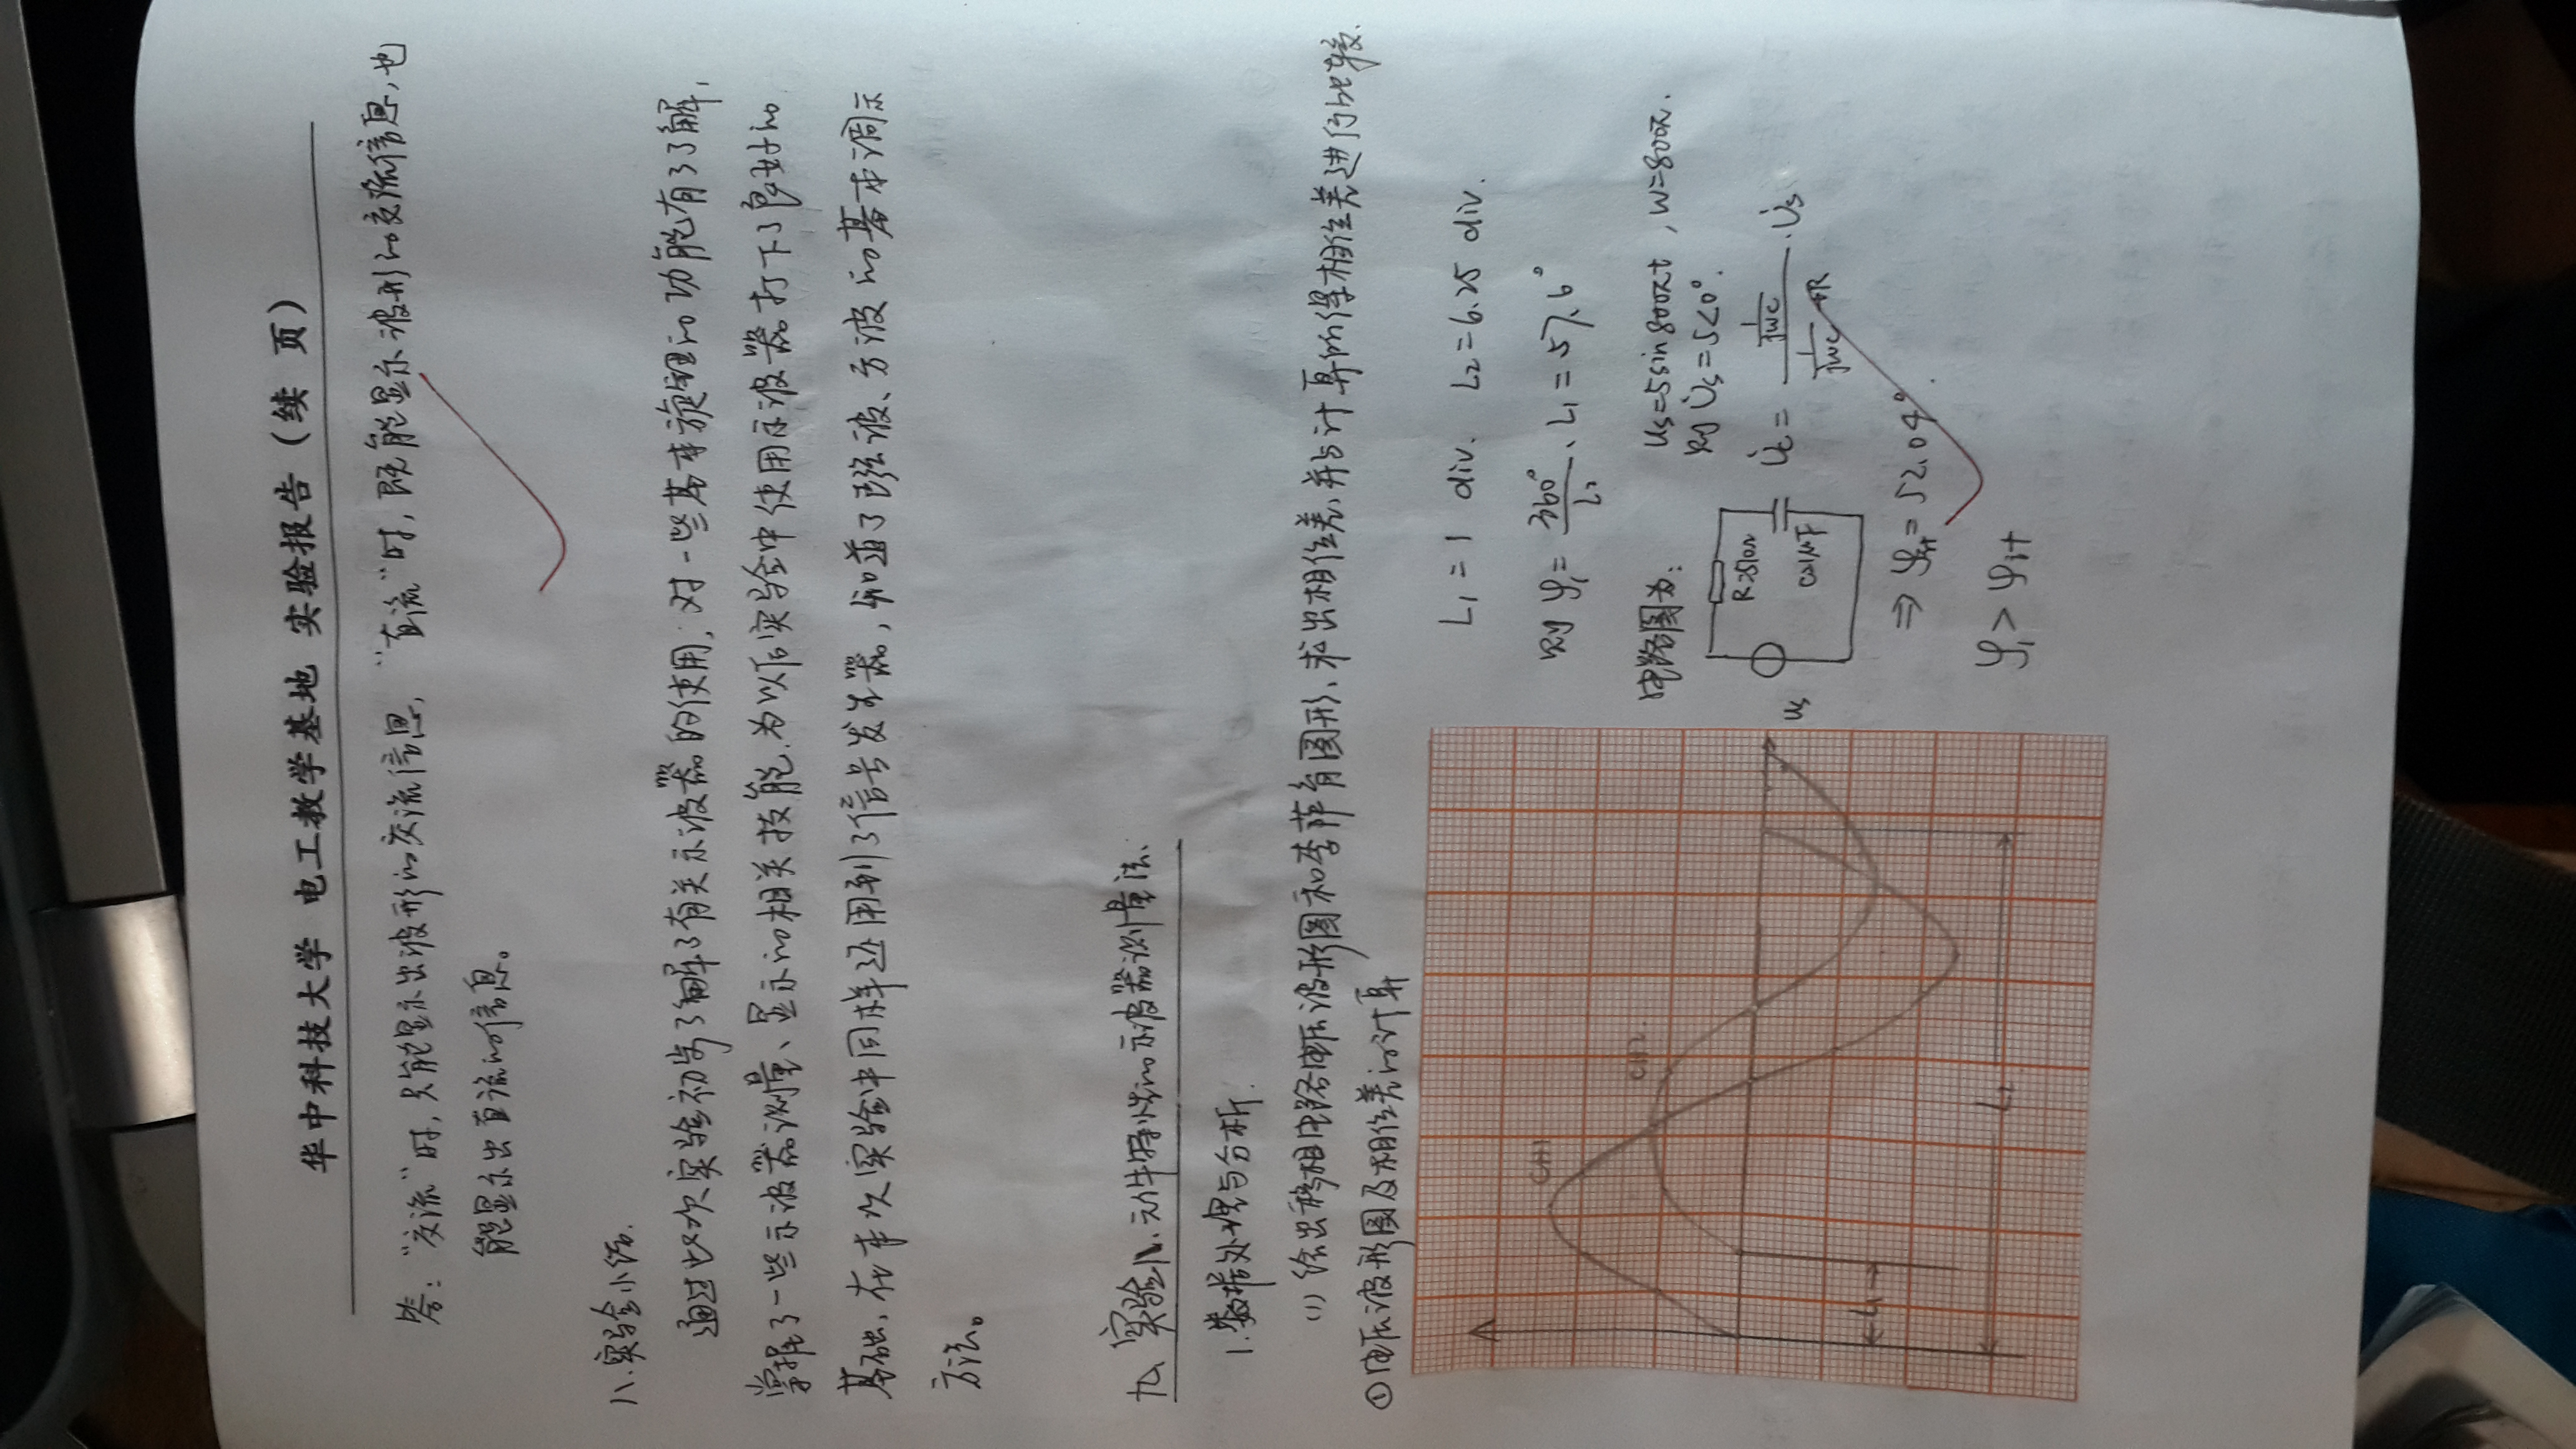 华中科技大学 电工教学基地 实验报告（续 页）
答："交流"时,只能显示出波形的交流信息,"直流"时,既能显示波形的交流信息,也
能显示出直流的信息。
八.实验小结.
通过此次实验初步了解了有关示波器的使用,对一些基本旋钮的功能有了了解,
掌握了一些示波器测量、显示的相关技能.为以后实验中使用示波器打下了良好的
基础,在本次实验中同样还用到了信号发生器,知道了正弦波、方波的基本调示
方法。
九、实验八、元件特性的示波器测量法.
1.数据处理与分析.
(1)绘出移相电路电压波形图和李萨育图形、求出相位差,并与计算所得相位差进行比较.
①电压波形图及相位差的计算
CH1
CH2
L1
L2
L1=1 div. L2=6.25 div.
则φ1=360°/L2·L1=57.6°
电路图为:
us=5sin800πt ,w=800π.
则U̇s=5∠0°.
R=510Ω
C=1μF
us
U̇c=(1/jwc)/(1/jwc+R)·U̇s
⇒φ计=52.04°.
φ1>φ计